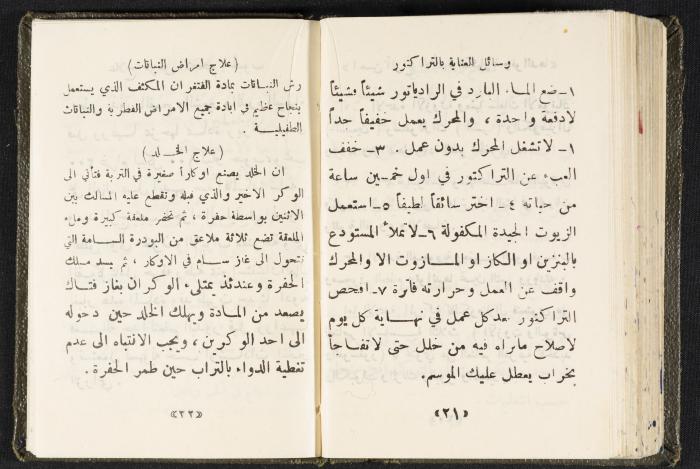 وسائل العناية بالتراكتور
١ـ ضع الماء البارد في الراديأتور شيئاً فشيئاً
لادفعة واحدة ، والمحرك يعمل خفيفاً جداً
١ـ لاتشغل المحرك بدون عمل . ٣ـ خفف
العبء عن التراكتور في اول خمسين ساعة
من حياته ٤ـ اختر سائقاً لطيفاً ٥ـ استعمل
الزيوت الجيدة المكفولة ٦ـ لاتملأ المستودع
بالبنزين او الكاز او المازوت الا والمحرك
واقف عن العمل وحرارته فاترة ٧ـ افحص
التراكتور بعدكل عمل في نهاية كل يوم
لاصلاح ماتراه فيه من خلل حتى لاتفاجأ
بخراب يعطل عليك الموسم.
«٢١»
(علاج امراض النباتات)
رش النباتات بمادة الفتفران المكثف الذي يستعمل
بنجاح عظيم في ابادة جميع الامراض الفطرية والنباتات
الطفيلية .
(علاج الخلد)
ان الخلد يصنع اوكاراً صغيرة في التربة فتأتي الى
الوكر الاخير والذي قبله وتقطع عليه المسالك بين
الاثنين بواسطة حفرة ، ثم تحضر ملعقة كبيرة وملء
الملعقة تضع ثلاثة ملاعق من البودرة السامة التي
تتحول الى غاز سام في الاوكار ، ثم يسد مسلك
الحفرة وعندئذ يمتلىء الوكران بغاز فتاك
يصعد من المادة ويهلك الخلد حين دخوله
الى احد الوكرين ، ويجب الانتباه الى عدم
تغطية الدواء بالتراب حين طمر الحفرة .
«٢٢»